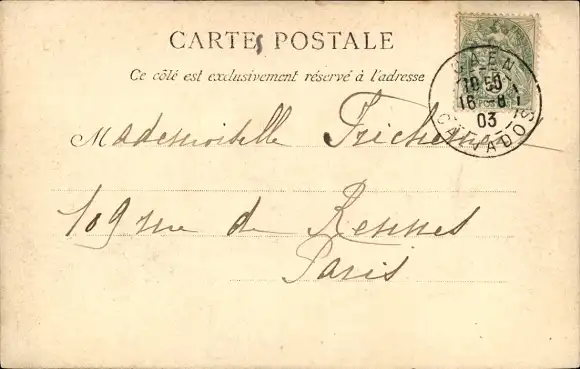 CARTE POSTALE
Ce côté est exclusivement réservé à l'adresse
CAEN
10 50
16 - 8
03
CALVADOS
Mademoiselle
109 rue de Rennes
Paris